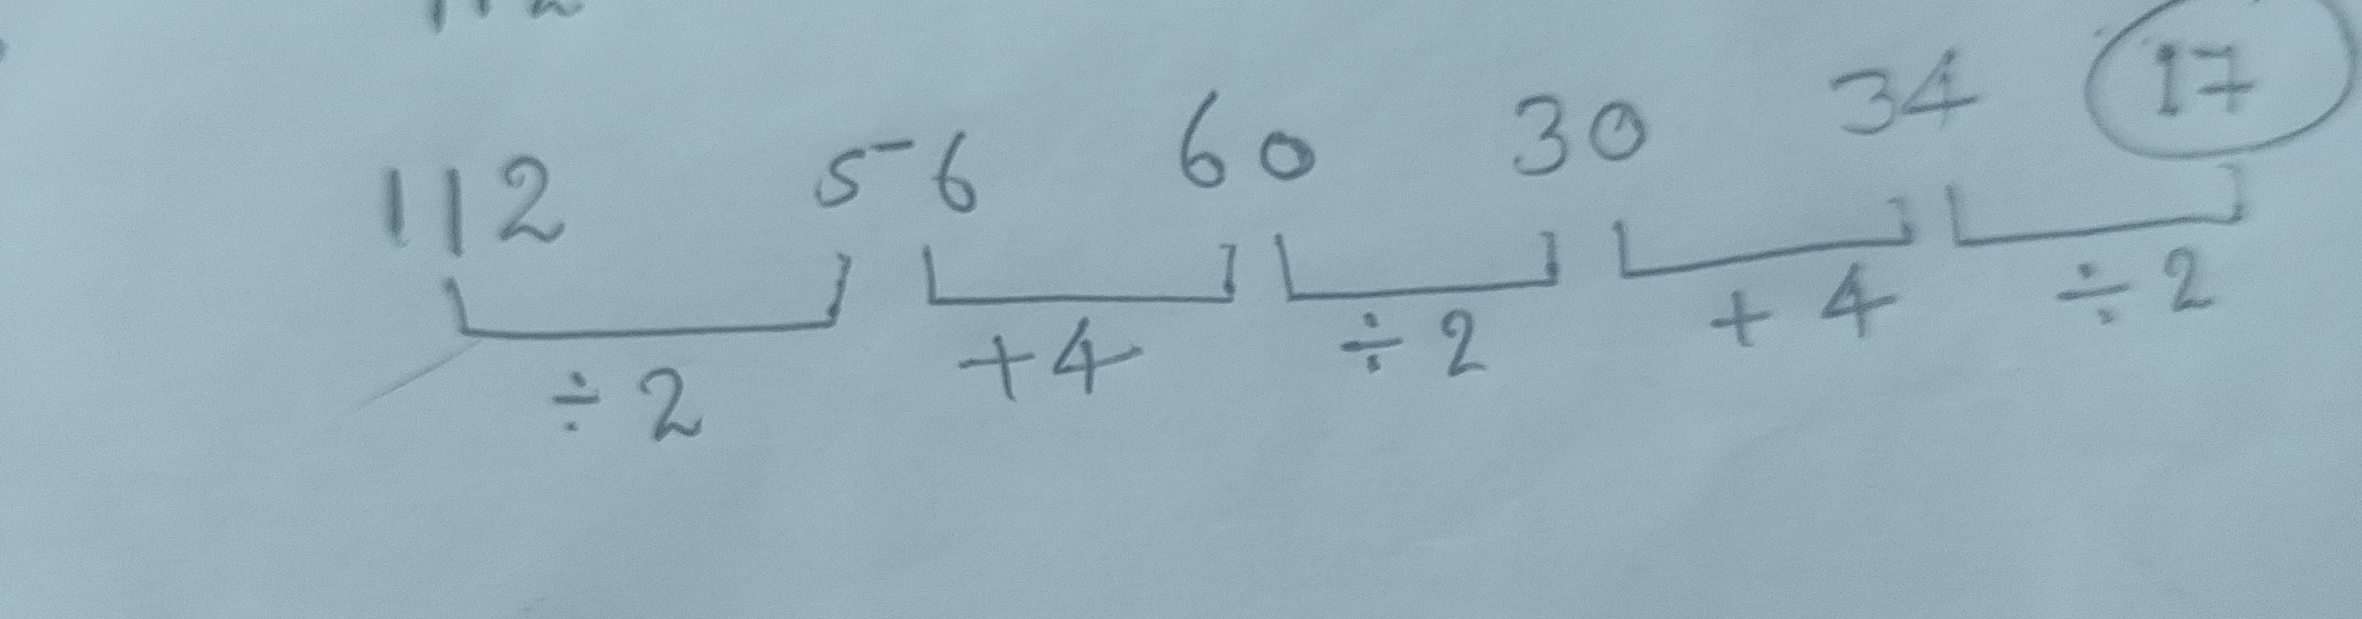 112 56 60 30 34 17
÷2 +4 ÷2 +4 ÷2